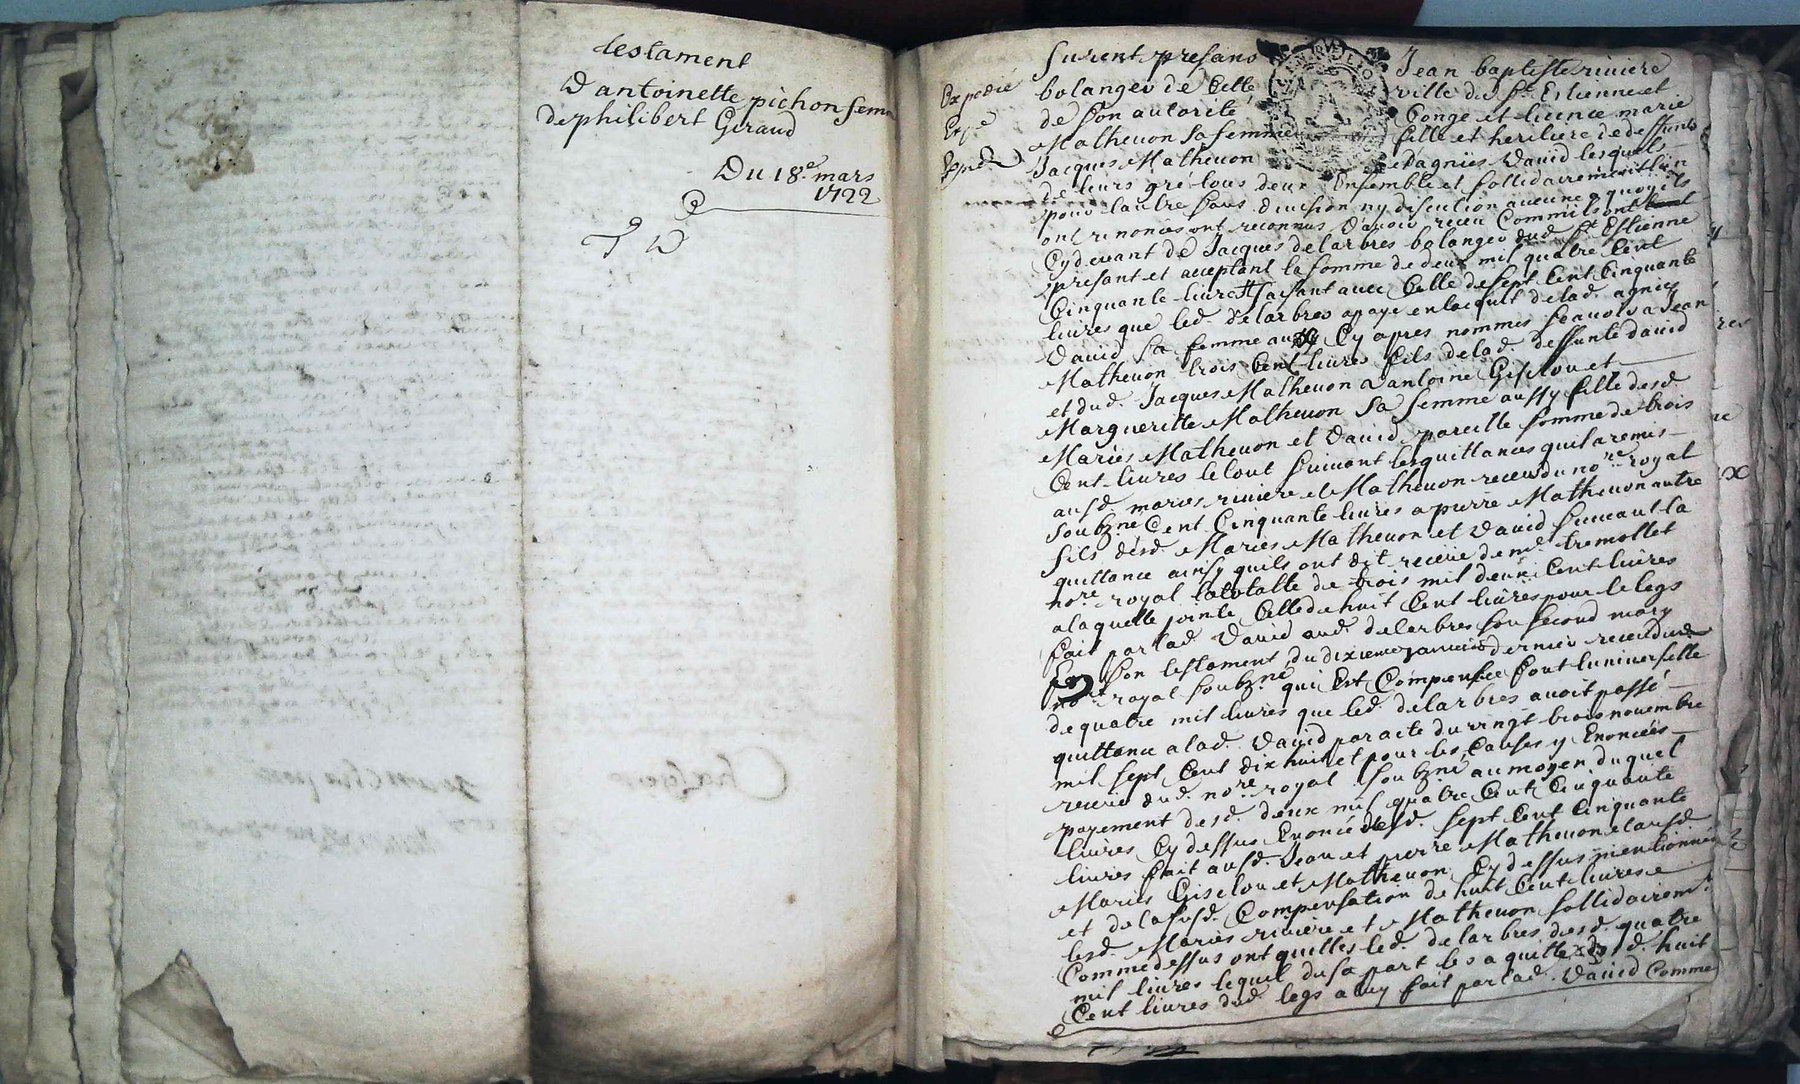 testament
D'antoinette pichon fem
de philibert Giraud
Du 18e mars
1722
furent presans Jean baptiste riviere
Expedié
bolanger de Cette ville de St Estienne et
de son autorité Congé et licence marie
Matheuon sa femme fille et heritiere de deffunts
Jacques Matheuon et Dagnies David lesquels
de leurs gré tous deux Ensemble et sollidairement lun
pour lautre sans division ny discution aucune a quoy ils
ont renoncés ont reconnus d'avoir receu Comme ils ont
Cy devant de Jacques delarbres bolanger dud. St Estienne
presant et acceptant la somme de deux mil quatre Cent
Cinquante livres faisant avec Celle de sept Cent Cinquante
livres que led. delarbres a payé en lacquit de lad. agnies
David sa femme aux Cy apres nommés scavoir a Jean
Matheuon trois Cent livres fils de lad. deffunte david
et dud. Jacques Matheuon a antoine Giselou et
Margueritte Matheuon sa femme aussy fille desd.
Mariés Matheuon et David pareille somme de trois
Cent livres le tout suivant les quittances quil a remis
ausd. mariés riviere et Matheuon receus du nore royal
soubzné Cent Cinquante livres a pierre Matheuon autre
fils desd. Mariés Matheuon et David suivant la
quittance ainsy quils ont dit receue de me tremollet
nore royal la totalle de trois mil deux Cent livres
a laquelle jointe Celle de huit Cent livres pour le legs
fait par lad. David aud. delarbres son second mary
son testament du dixieme janvier dernier receu dud.
nore royal soubzné qui Est Compensée font luniverselle
de quatre mil livres que led. delarbres avoit passé
quittance a lad. David par acte du vingt trois novembre
mil sept Cent dix huit et pour les Causes y Enoncées
receue dud. nore royal soubzné au moyen duquel
payement desd. deux mil quatre Cent Cinquante
livres Cy dessus Enoncé desd. sept Cent Cinquante
livres fait ausd. Jean et pierre Matheuon et ausd.
Mariés Giselou et Matheuon Cy dessus mentionnés
et de la susd. Compensation de huit Cent livres
lesd. Mariés riviere et Matheuon sollidairemt
Comme dessus ont quittés led. delarbres desd. quatre
mil livres lequel de sa part les a quitté desd. huit
Cent livres dud. legs a luy fait par lad. David Comme